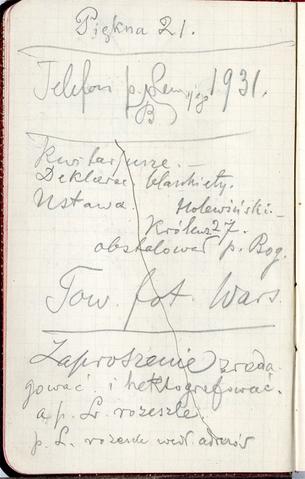 Piękna 21.
Telefon p. 1931.
B
Kwitarjusze. –
Deklarac. blankiety.
Ustawa Holewiński. –
Królew 27.
obstalował p. Bog.
Tow. fot. Wars.
Zaproszenie zreda-
gować i hektografować.
a p. Lr. rozeszle.
p. L. rozesłe wedł. adresów